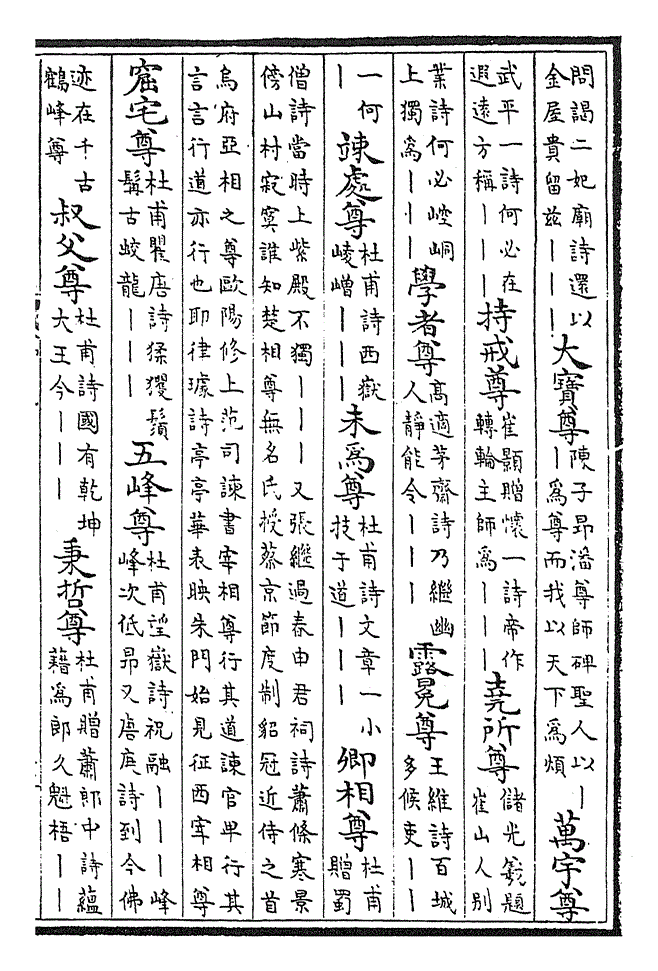 問謁二妃廟詩還以
金屋貴留玆｜｜｜
大寶尊
陳子昂潘尊師碑聖人以｜
｜爲尊而我以天下爲煩
萬宇尊
武平一詩何必在
遐遠方稱｜｜｜
持戒尊
崔顥贈懷一詩帝作
轉輪主師爲｜｜｜
堯所尊
儲光羲題
崔山人別
業詩何必崆峒
上獨爲｜｜｜
學者尊
高適茅齋詩乃繼幽
人靜能令｜｜｜
露冕尊
王維詩百城
多候吏｜｜
一何
｜
竦處尊
杜甫詩西嶽
崚嶒｜｜｜
未爲尊
杜甫詩文章一小
技于道｜｜｜
卿相尊
杜甫
贈蜀
僧詩當時上紫殿不獨｜｜｜又張繼過春申君祠詩蕭條寒景
傍山村寂寞誰知楚相尊無名氏授蔡京節度制貂冠近侍之首
烏府亞相之尊歐陽修上范司諫書宰相尊行其道諫官卑行其
言言行道亦行也耶律璩詩亭亭華表映朱門始見征西宰相尊
窟宅尊
杜甫瞿唐詩猱玃鬚
髯古蛟龍｜｜｜
五峰尊
杜甫望嶽詩祝融｜｜｜峰
峰次低昂又唐庚詩到今佛
迹在千古
鶴峰尊
叔父尊
杜甫詩國有乾坤
大王今｜｜｜
秉哲尊
杜甫贈蕭郎中詩蘊
藉爲郎久魁梧｜｜